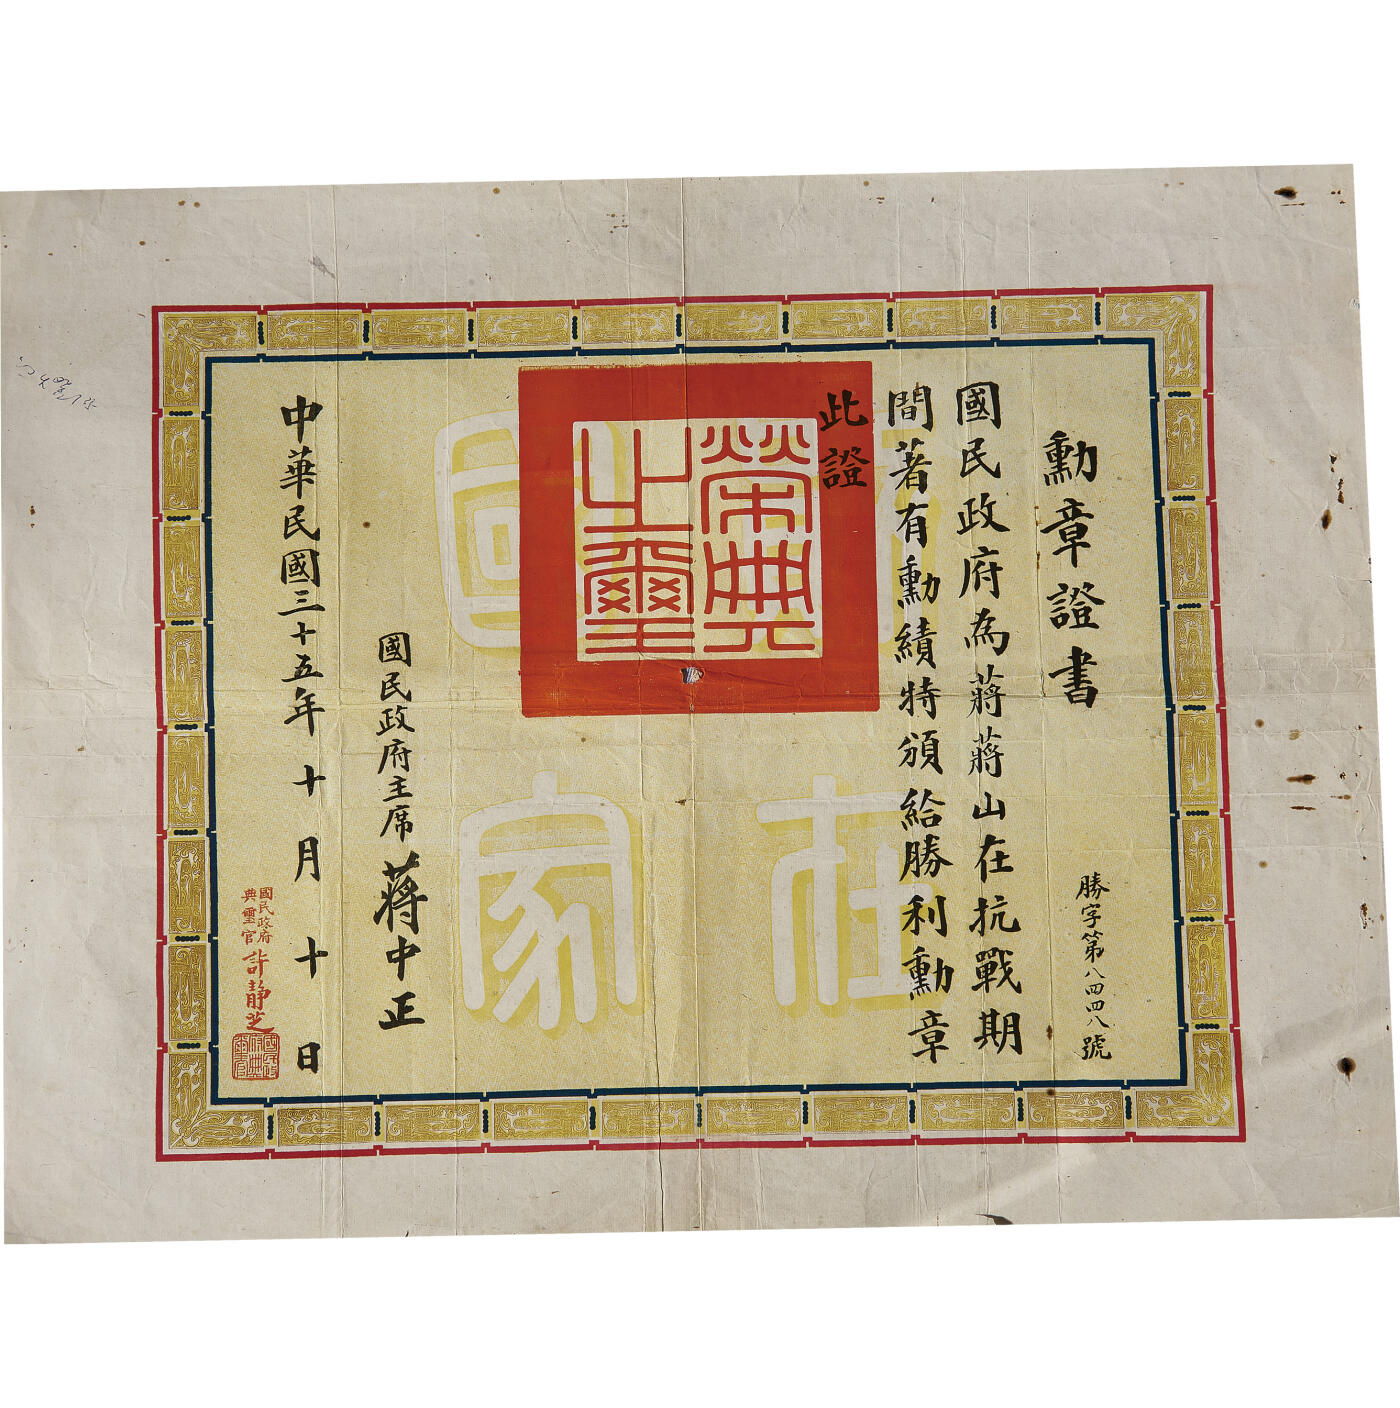 勳章證書
國民政府為蔣蔣山在抗戰期
間著有勳績特頒給勝利勳章
此證
勝字第八四四八號
榮典
之璽
國民政府主席蔣中正
中華民國三十五年十月十日
國民政府
典璽官
許靜芝
國
在
家